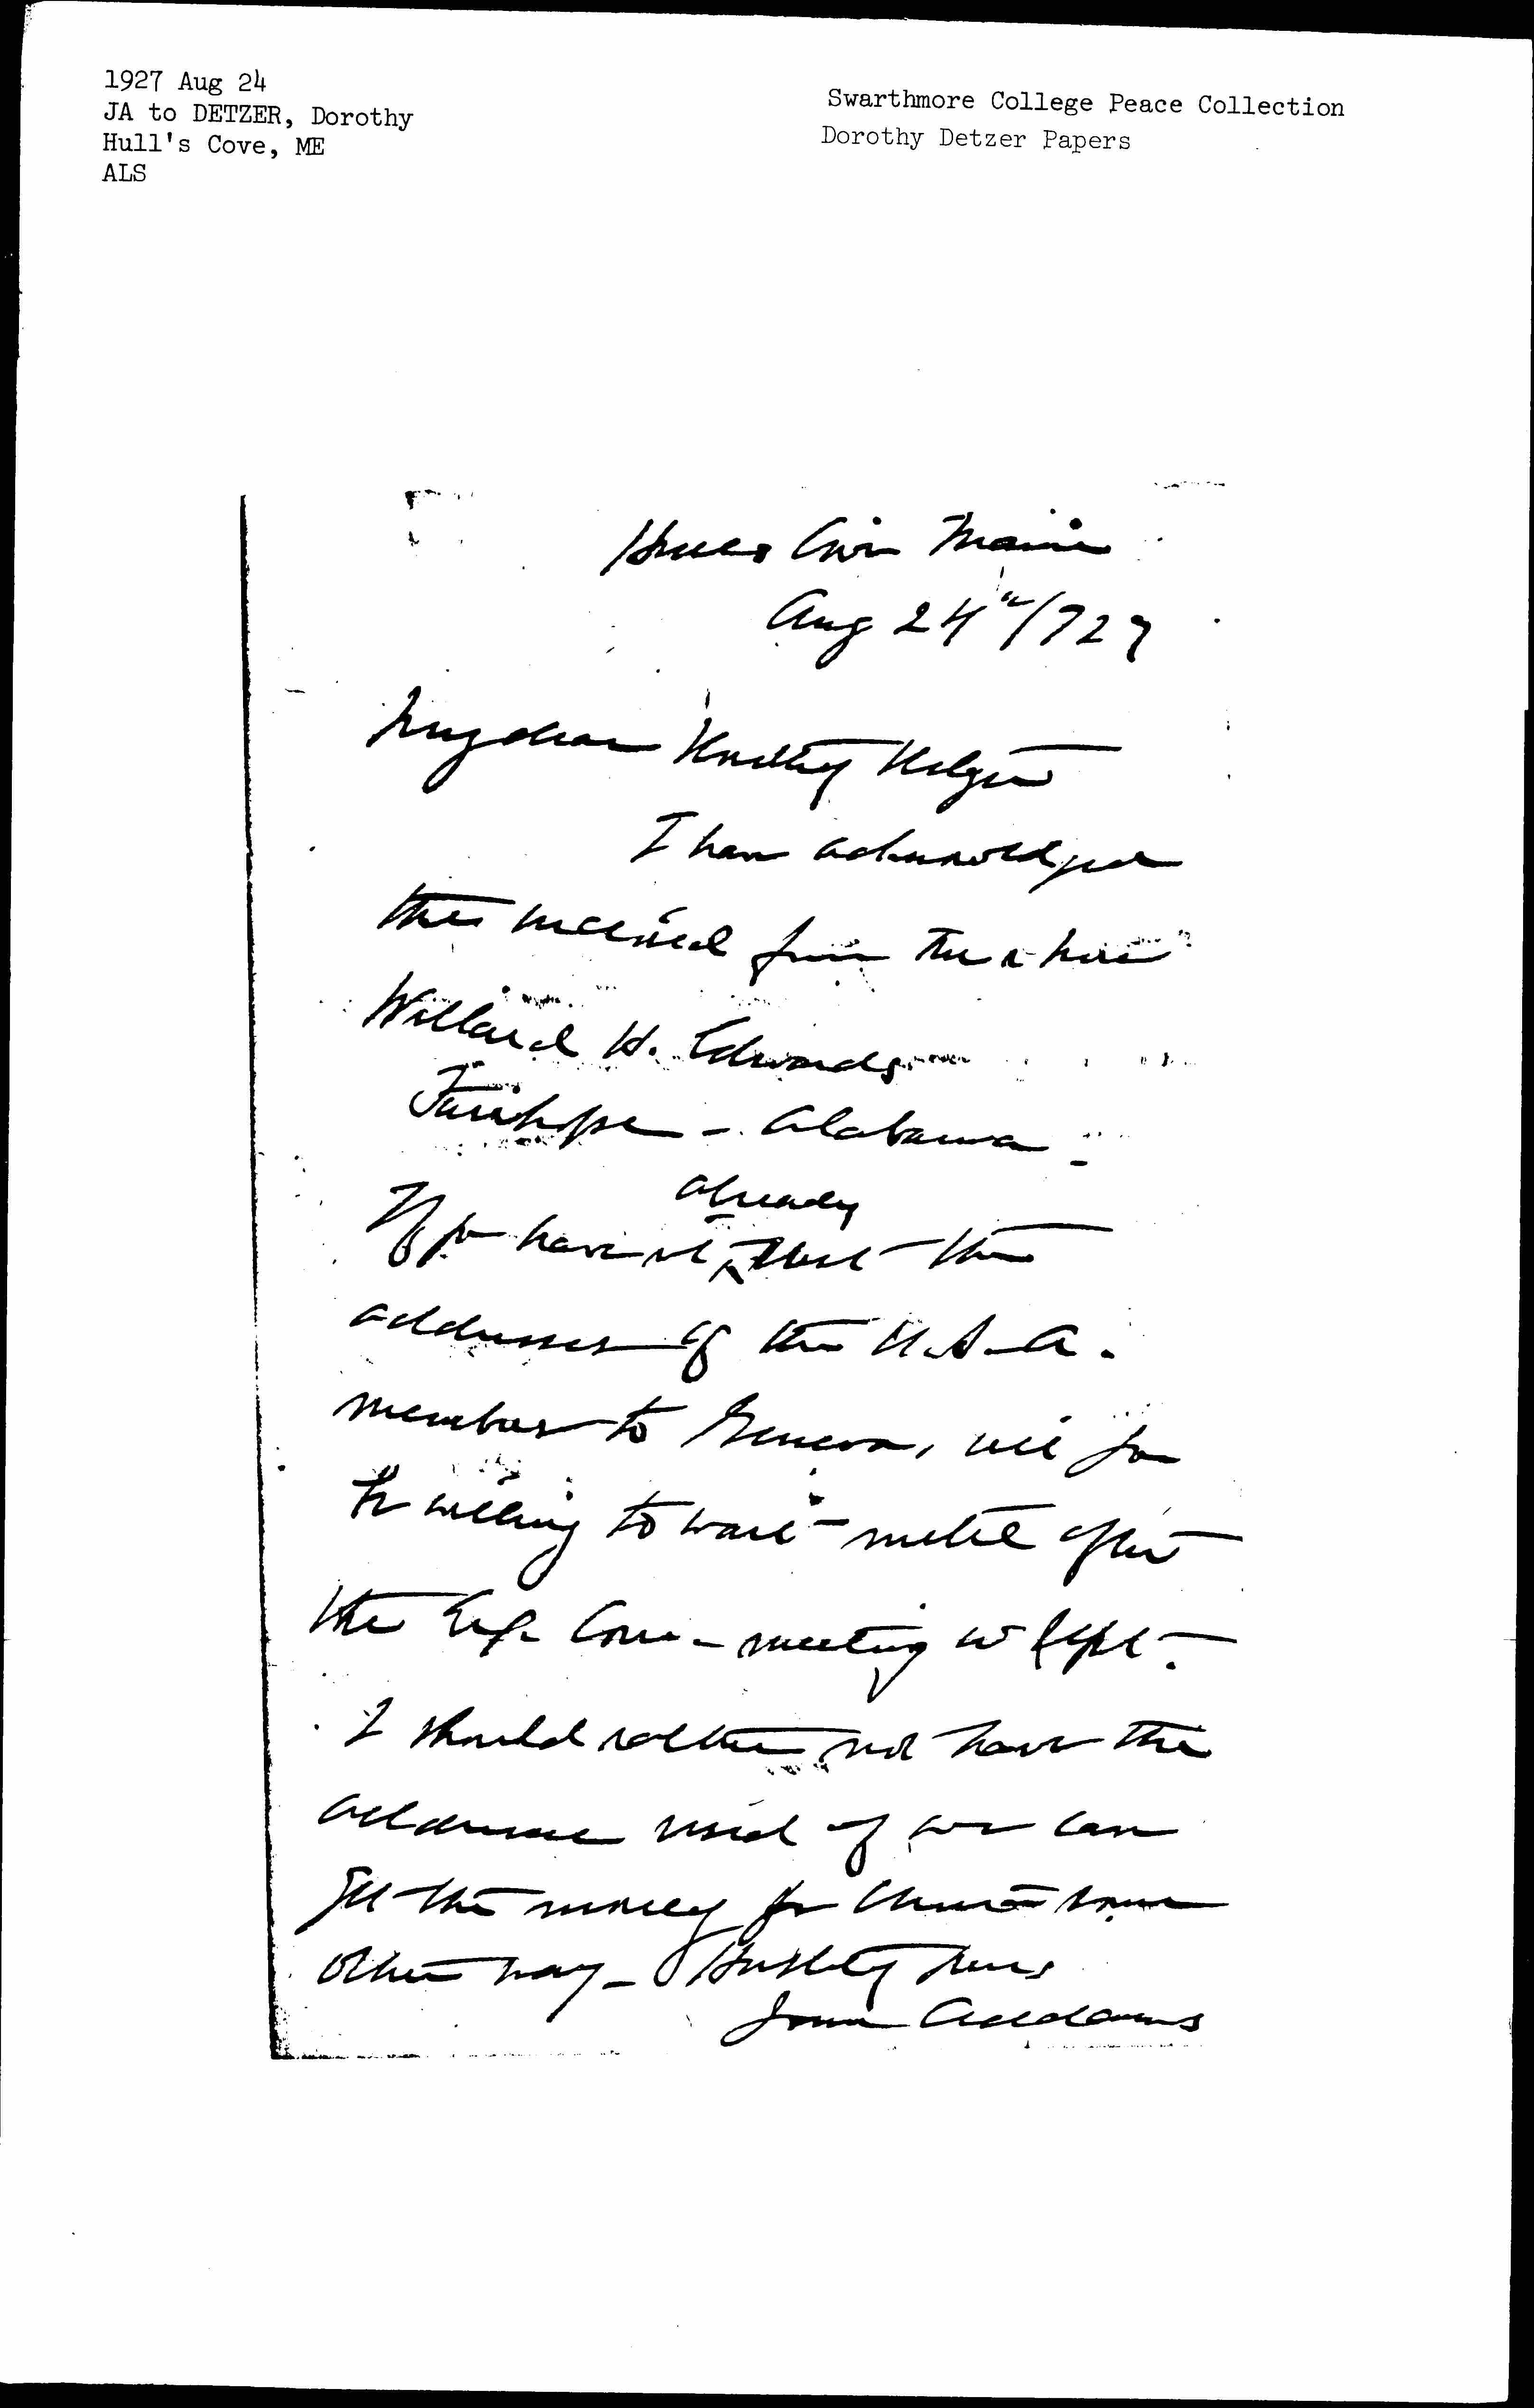 1927 Aug 24
JA to DETZER, Dorothy
Hull's Cove, ME
ALS
Swarthmore College Peace Collection
Dorothy Detzer Papers
Hulls Cove Maine
Aug 24"/927
My dear Dorothy Detzer
I have acknowledged
this received from
Willard H. Edwards
Fairhope - Alabama -
If you have not already sent the
addresses of the U.S.A.
members to Geneva, will you
be willing to wait until after
the Exe. Com - meeting in Sept -
I should rather not have the
addresses used if we can
get the money for some
other way - Hastily yours
Jane Addams